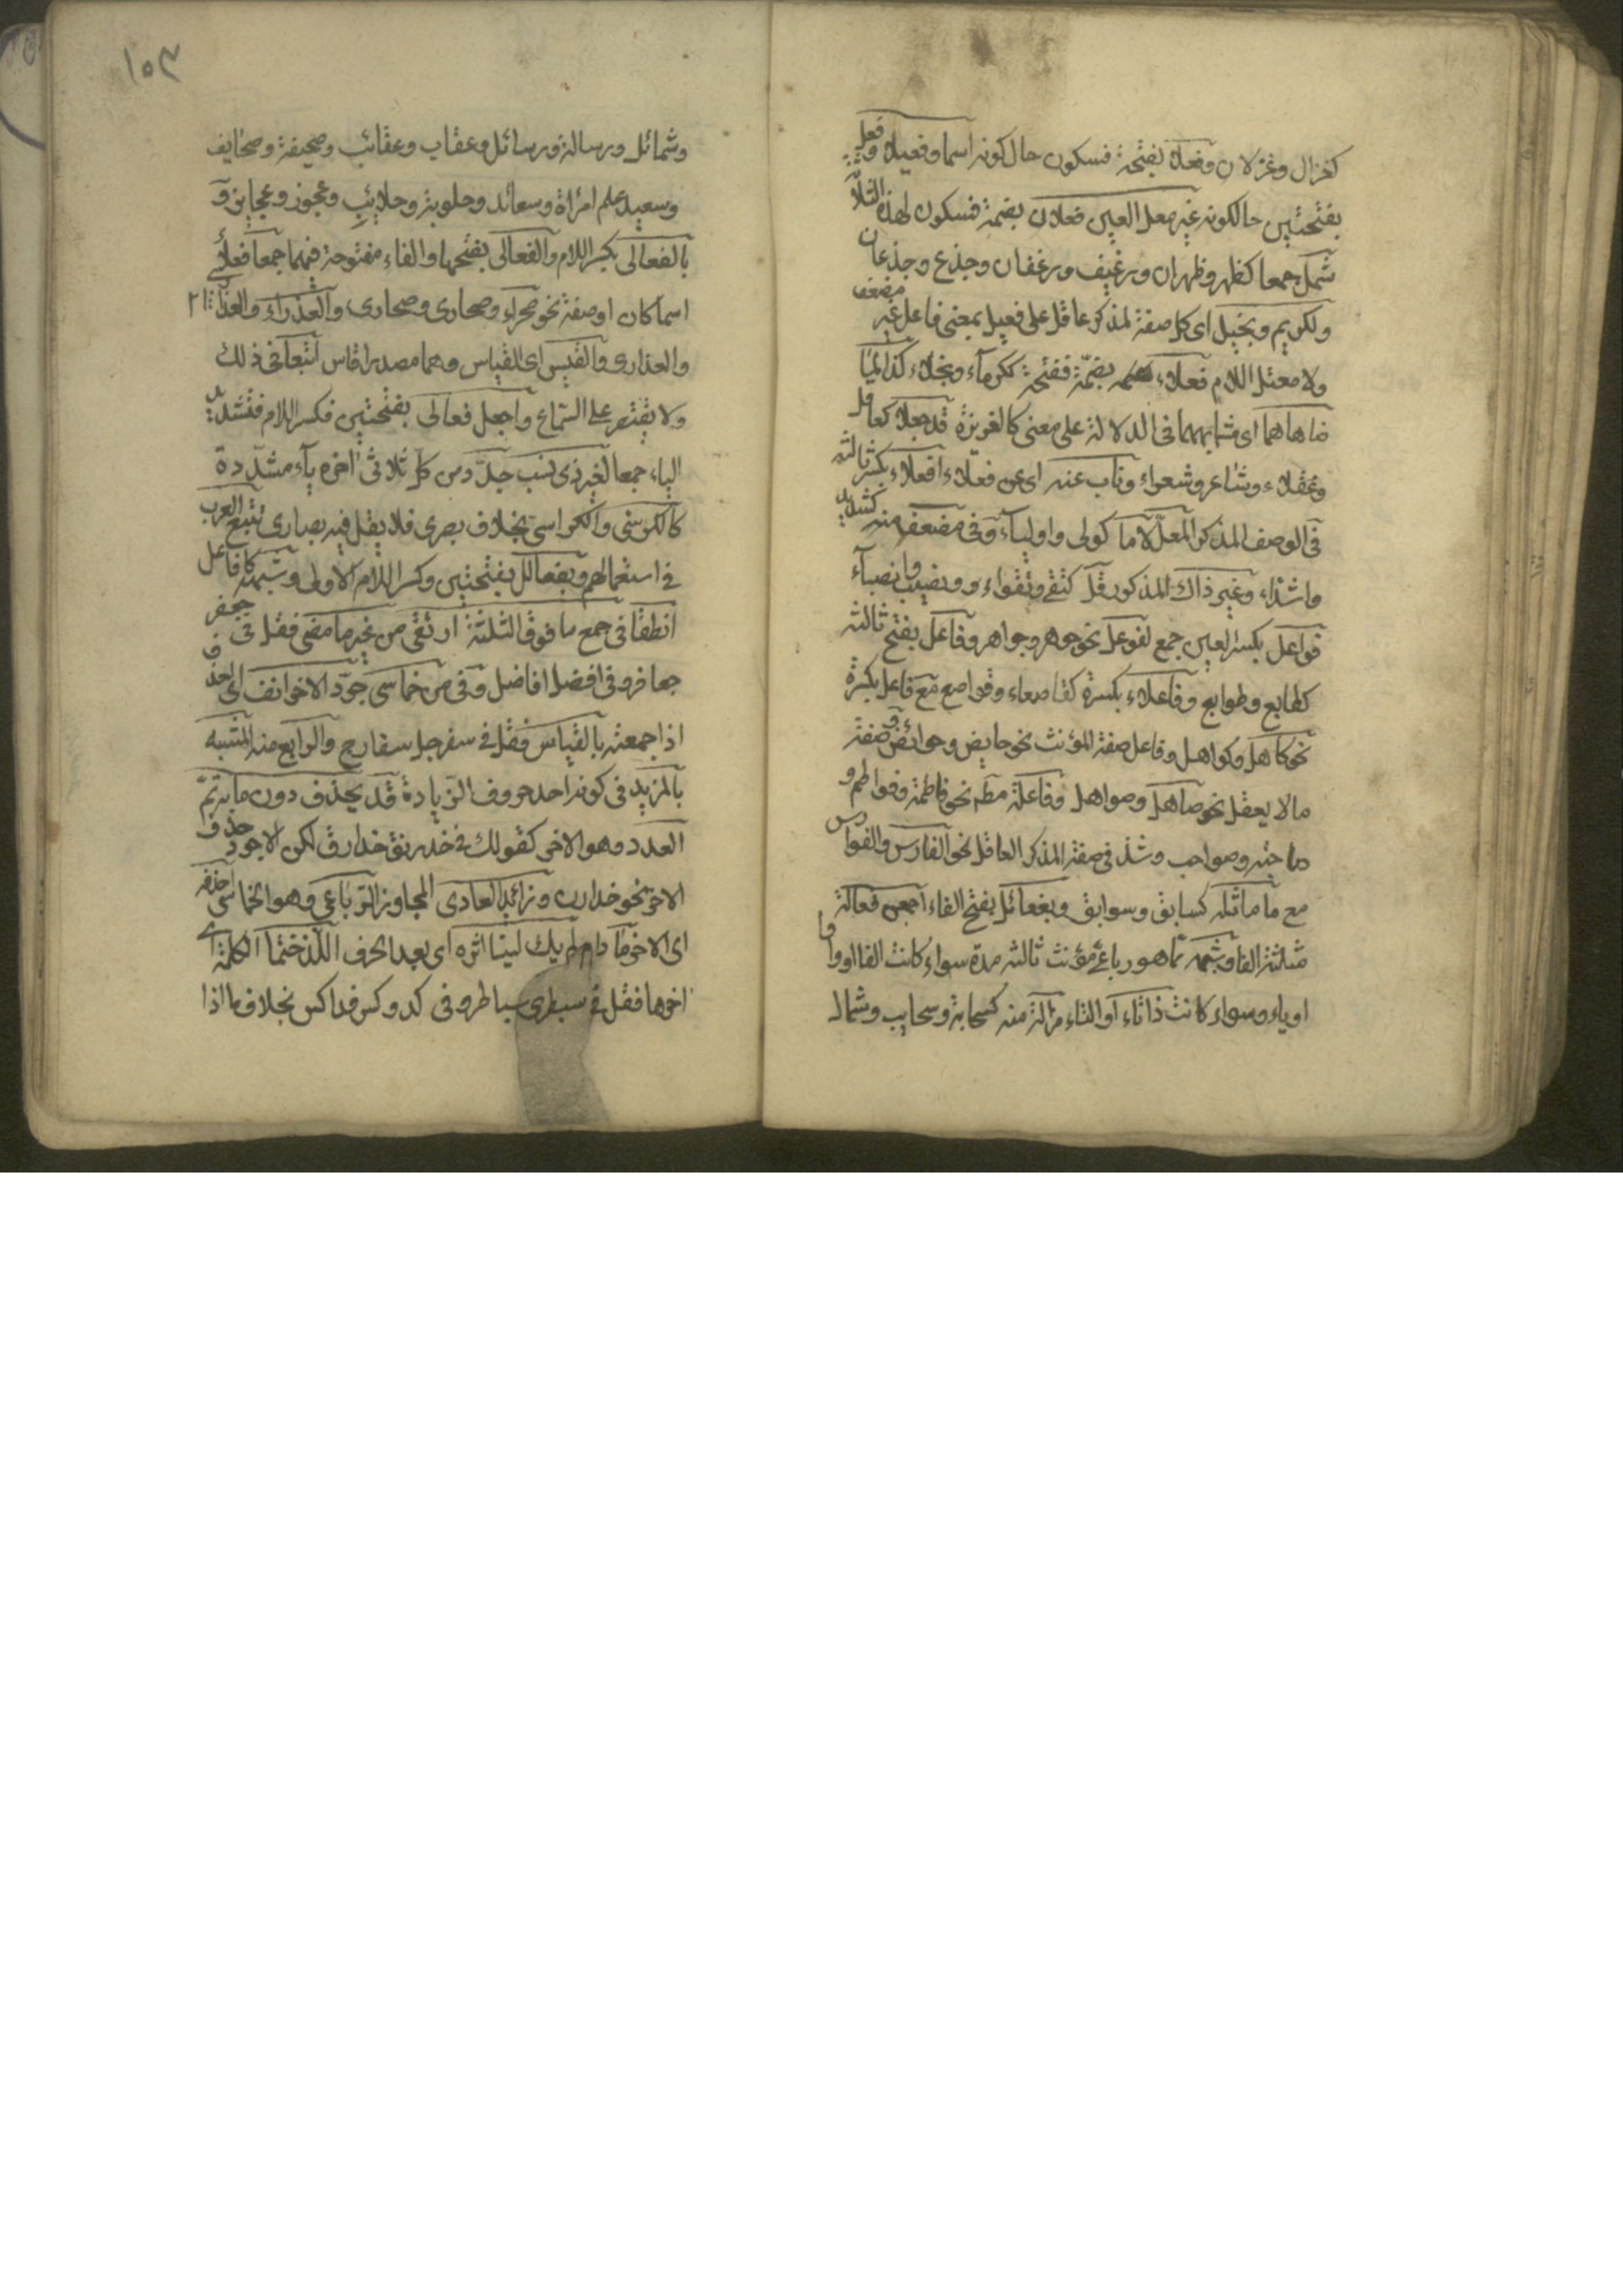 كغزال وغزلان وفعلا بفتحة فسكون حال كونه اسما وفعيلا وفعل
بفتحتين حال كونه غير معل العين فعلان بضمة فسكون لهذه الثلاثة
شمل جمعا كظهر وظهران ورغيف ورغفان وجذع وجذعان
ولكريم وبخيل اى كل صفة لمذكر عاقل على فعيل بمعنى فاعل غير مضعف
ولا معتل اللام فعلاء بضمّة ففتحة ككرمآء وبخلاء كذا لما
ضاهاهما اى شابههما فى الدلالة على معنى كالغريزة قد جعلا كعاقل
وعقلاء وشاعر وشعراء وناب عنه اى عن فعلاء افعلاء بكسر ثالثه
فى الوصف المذكر المعلّ لاما كولى واولياء وفى مضعف منه كشديد
واشدّاء وغير ذاك المذكور قل كتقى وتقواء ونصيب وانصبآء
فواعل بكسر العين جمع لفوعل نحو جوهر وجواهر وفاعل بفتح ثالثه
كطابع وطوابع وفاعلاء بكسرة كقاصعاء وقواصع مع فاعل بكسرة
نحو كاهل وكواهل وفاعل صفة المؤنث نحو حايض وحوائض وصفة
مالا يعقل نحو صاهل وصواهل وفاعلة مطم نحو فاطمة وفواطم و
صاحبة وصواحب وشذ فى صفة المذكر العاقل نحو الفارس والفوارس
مع ما ماثله كسابق وسوابق وبفعائل بفتح الفاء اجمعن فعالة
مثلثة الفا وشبهه مما هو رباعى مؤنث ثالثه مدة سواء كانت الفا او واوا
او ياء وسواء كانت ذا تاء او التاء مزالة منه كسحابة وسحايب وشمال
١٥٣
وشمائل ورسالة ورسائل وعقاب وعقائب وصحيفة وصحايف
وسعيد علم امرأة وسعائد وحلوبة وحلايب وعجوز وعجايز و
بالفعالى بكسر اللام والفعالى بفتحها والفاء مفتوحة فيهما جمعا فعلاء
اسما كان او صفة نحو صحراء وصحارى وصحارى والعذراء والعذارى
والعذارى والقيس اى القياس وهما مصدرا قاس اتبعا فى ذلك
ولا يقتصر على السّماع واجعل فعالى بفتحتين فكسر اللام فتشديد
الياء جمعا لغير ذى نسب جدّد من كل ثلاثى اخره ياء مشدّدة
كالكرسى والكراسى بخلاف بصرى فلا يقل فيه بصارى تتبع العرب
فى استعمالهم وبفعالل بفتحتين وكسر اللام الاولى وشبهه كافاعل
انطقا فى جمع ما فوق الثلثة ارتقى من غير ما مضى فقل فى جعفر
جعافر وفى افضل افاضل وفى من خماسى جرّد الاخر انف اى احذف
اذا جمعته بالقياس فقل فى سفرجل سفارج والرابع منه الشبيه
بالمزيد فى كونه احد حروف الزيادة قد يحذف دون ما به تمّ
العدد وهو الاخر كقولك فى خدرنق خدارق لكن الاجود حذف
الاخر نحو خدارن وزائد العادى المجاوز الرّباعى وهو الخماسى احذفه
اى الاخر ما دام لم يك لينا اثره اى بعد الحرف اللذ ختما الكلمة اى
اخرها فقل فى سبطرى سباطر وفى كدوكس فداكس بخلاف ما اذا